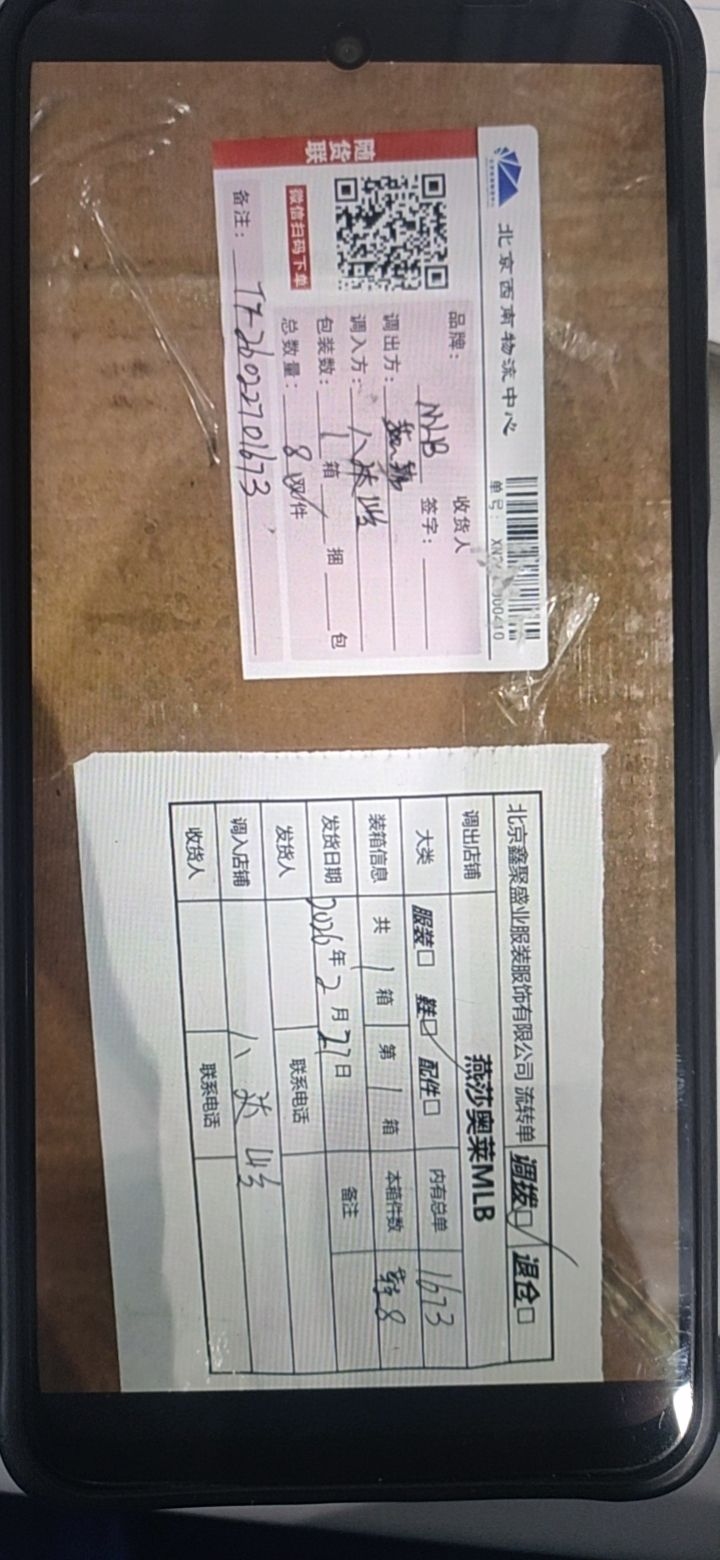 随货联
北京西南物流中心
单号：
000410
微信扫码下单
品牌： MLB
收货人
签字：
调出方：
调入方： 八达岭
包装数： 1 箱 捆 包
总数量： 8双 件
备注： TX26022701673
北京鑫聚盛业服装服饰有限公司 流转单 调拨☑ 退仓□
调出店铺 燕莎奥莱MLB
大类 服装□ 鞋☑ 配件□ 内有总单 1673
装箱信息 共 1 箱 第 1 箱 本箱件数 鞋8
发货日期 2026年2月27日 备注
发货人 联系电话
调入店铺 八达岭
收货人 联系电话